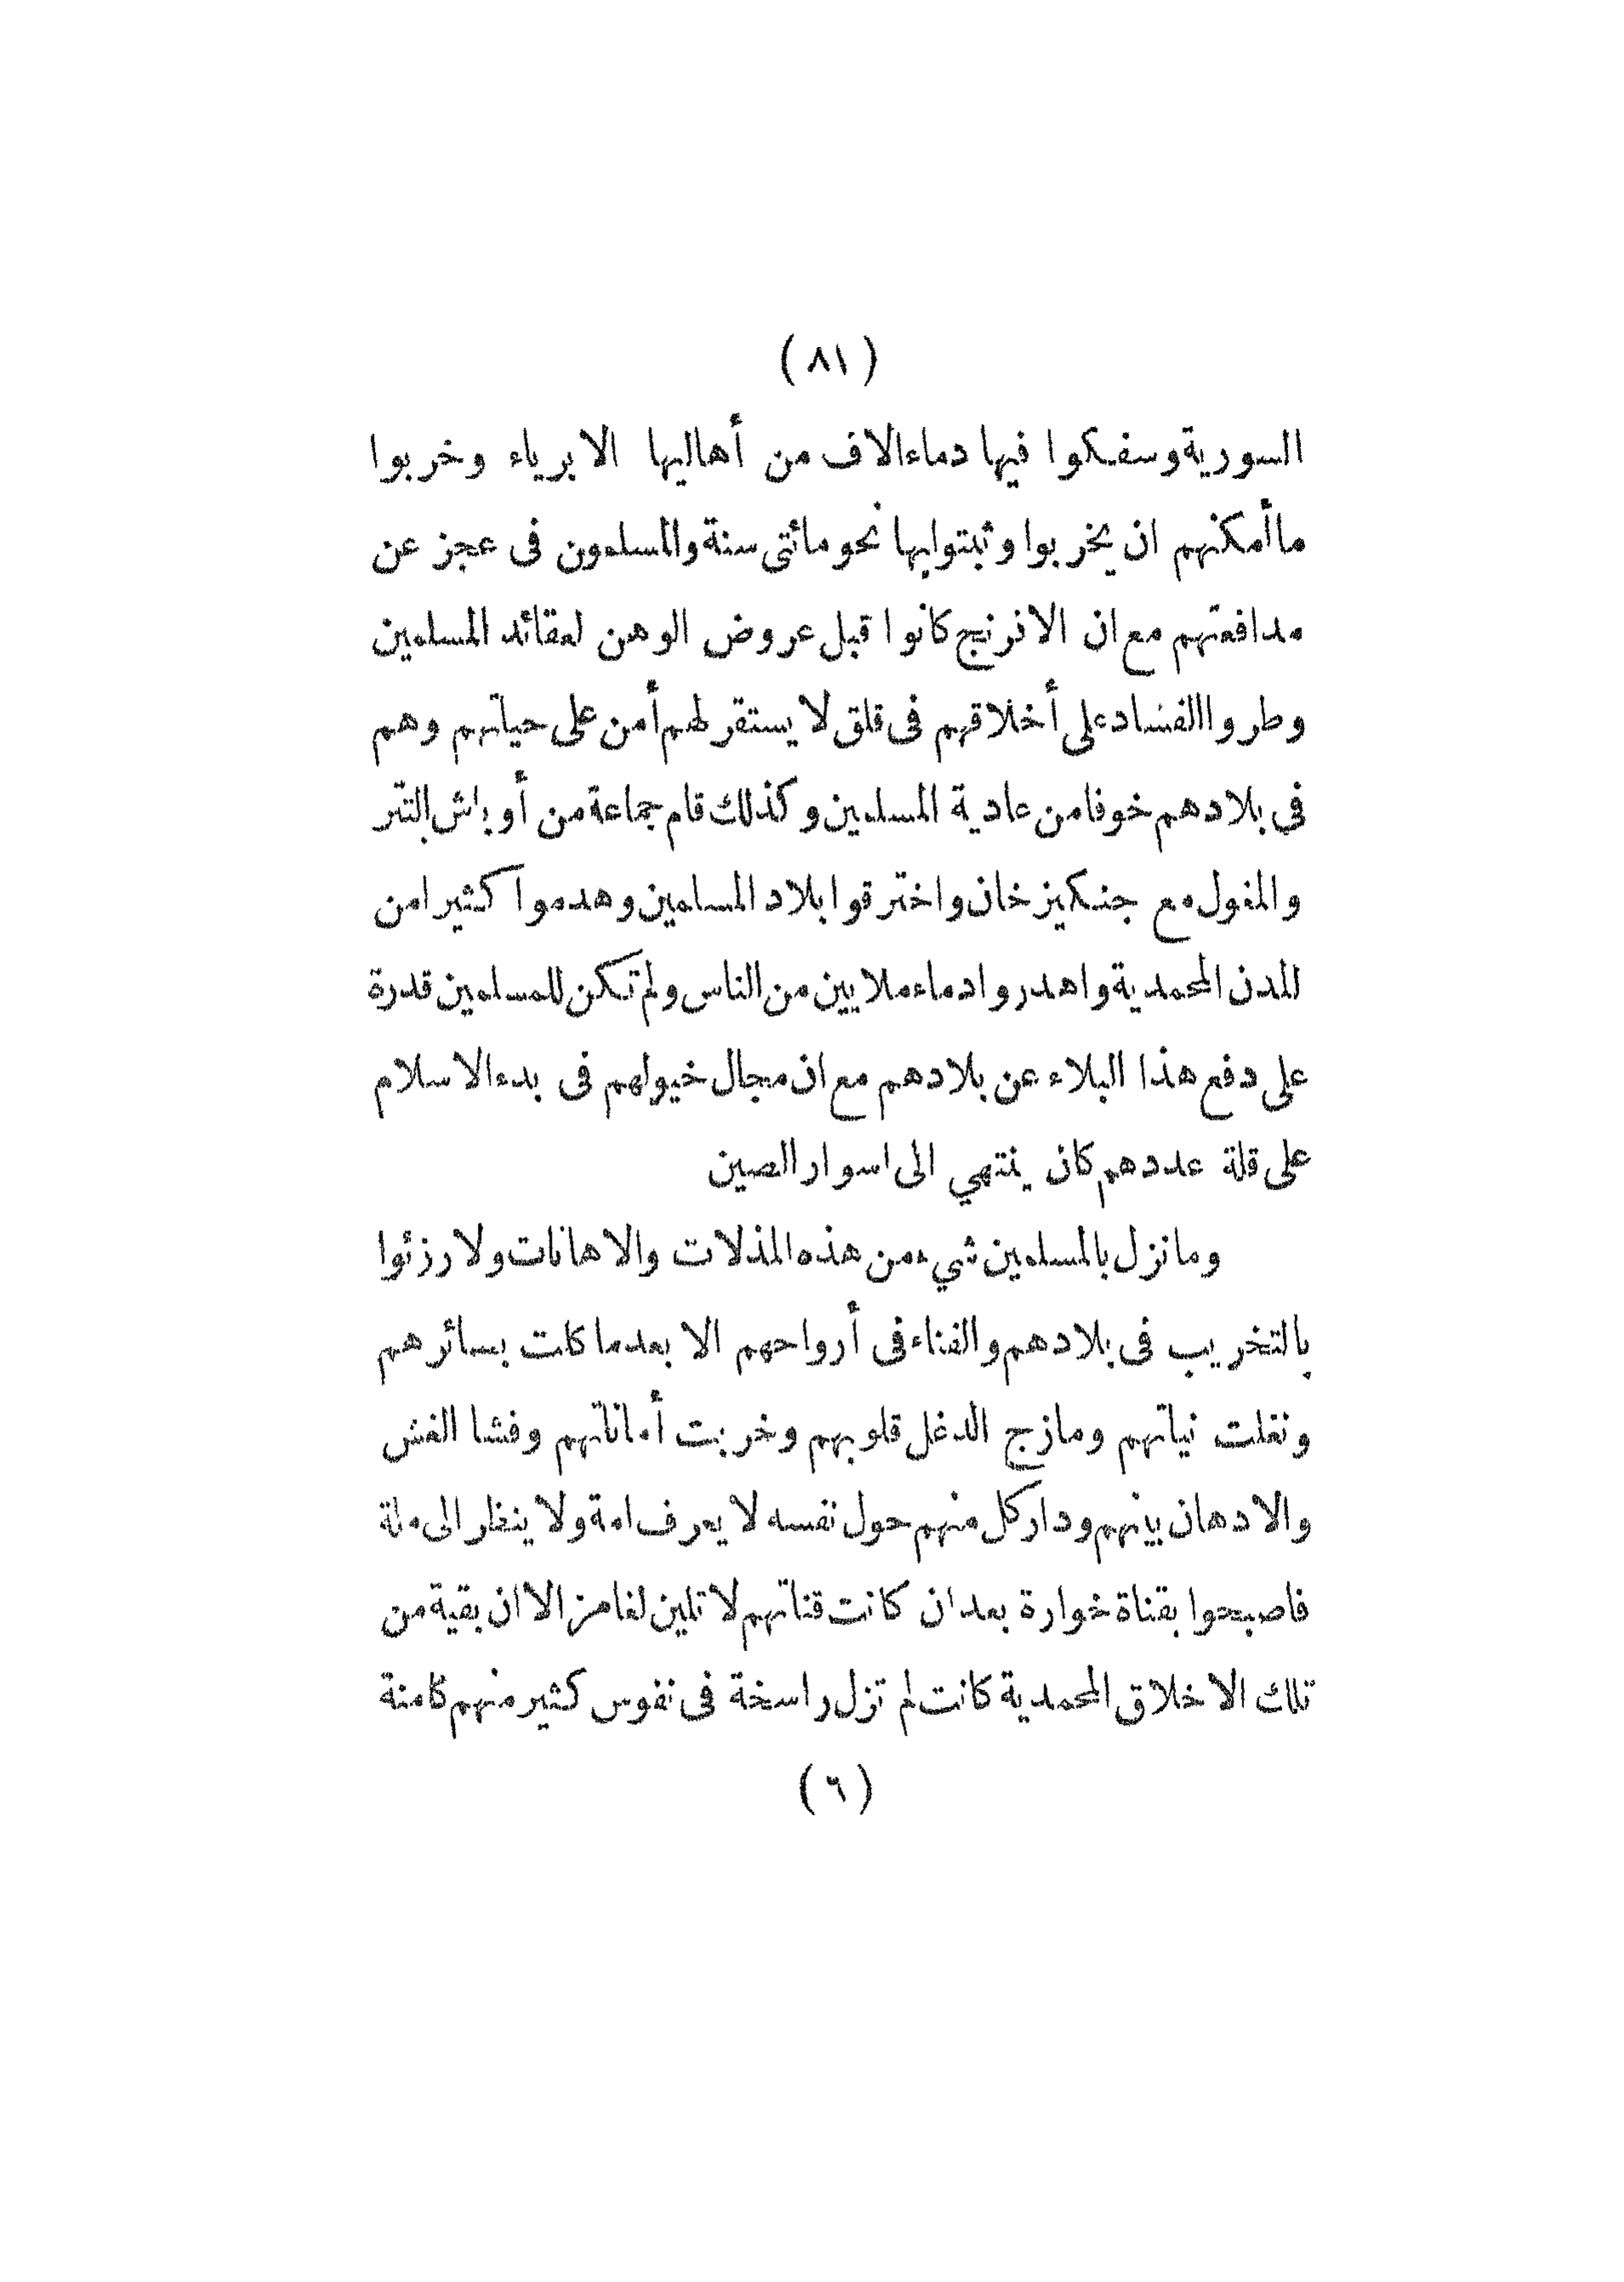 (٨١)
السورية وسفكوا فيها دماء الاف من أهاليها الابرياء وخربوا
ما أمكنهم ان يخربوا وثبتوا بها نحو مائتى سنة والمسلمون فى عجز عن
مدافعتهم مع ان الافرنج كانوا قبل عروض الوهن لعقائد المسلمين
وطروا الفساد على أخلاقهم فى قلق لا يستقر لهم أمن على حياتهم وهم
فى بلادهم خوفا من عادية المسلمين وكذلك قام جماعة من أوباش التتر
والمغول مع جنكيز خان واخترقوا بلاد المسلمين وهدموا كثيرا من
المدن المحمدية واهدروا دماء ملايين من الناس ولم تكن للمسلمين قدرة
على دفع هذا البلاء عن بلادهم مع ان مجال خيولهم فى بدء الاسلام
على قلة عددهم كان ينتهي الى اسوار الصين
وما نزل بالمسلمين شيء من هذه المذلات والاهانات ولا رزئوا
بالتخريب فى بلادهم والفناء فى أرواحهم الا بعد ما كلت بصائرهم
ونغلت نياتهم ومازج الدغل قلوبهم وخربت أماناتهم وفشا الغش
والادهان بينهم ودار كل منهم حول نفسه لا يعرف امة ولا ينظر الى ملة
فاصبحوا بقناة خوارة بعد ان كانت قناتهم لا تلين لغامز الا ان بقية من
تلك الاخلاق المحمدية كانت لم تزل راسخة فى نفوس كثير منهم كامنة
(٦)